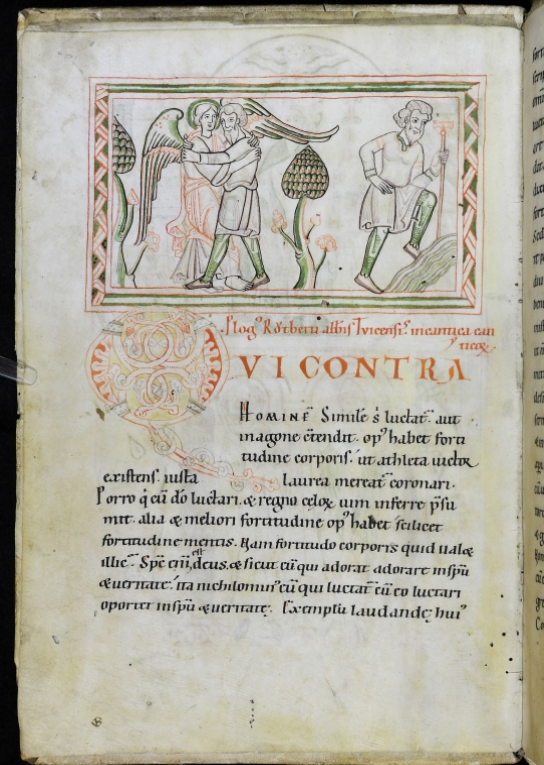 Ꝓlogꝰ Rǒtberti abb̅is Tuicensiꝰ in cantica can
ticoꝝ
QVI CONTRA
HOMINE̅ Simile̅ s luctat᷑ aut
in agone c̅tendit· opꝰ habet forti
tudine corporis· ut athleta uictoꝝ
existens· iusta laurea mereat᷑ coronari·
Porro q̇ cu̅ dō luctari· & regno celoꝝ uim inferre p̄su
mit· alia & meliori fortitudine opꝰ habet scilicet
fortitudine mentis. Nam fortitudo corporis quid ualet
illic· Sp̅c eni̅ est deus. & sicut eu̅ qui adorat adorare in sp̅u
& ueritate· ita nichilominꝰ eu̅ qui luctat᷑ cu̅ eo luctari
oportet in sp̅u & ueritate· Exemplu̅ laudandę huiꝰ